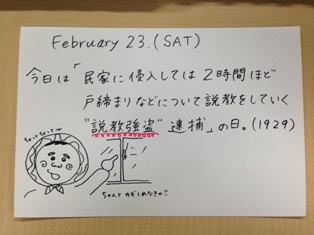 February 23.(SAT)
今日は「民家に侵入しては2時間ほど
戸締まりなどについて説教をしていく
"説教強盗"逮捕」の日。(1929)
ちょっとちょっとォ
ちゃんとカギしめなきゃ!!